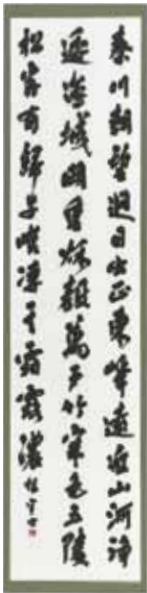 秦川朝望迥日出正東峰遠近山河淨
逶迤城闕重秋聲萬戶竹寒色五陵
松客有歸歟嘆淒其霜露濃